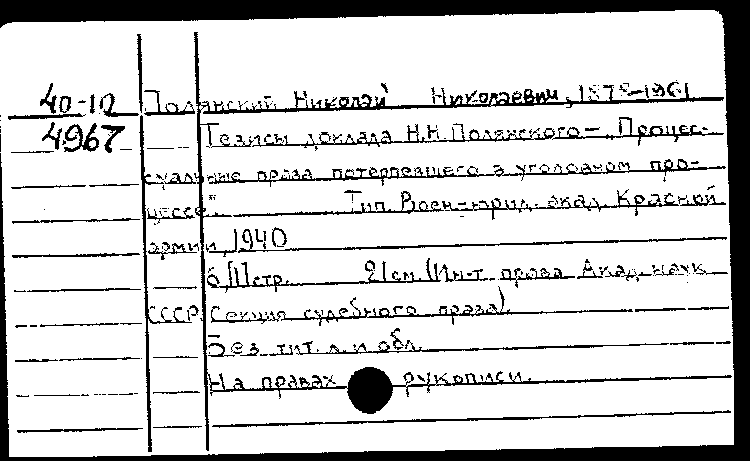 40-10 Полянский Николай Николаевич, 1878-1961
4967 Тезисы доклада Н.Н. Полянского — „Процес-
суальные права потерпевшего в уголовном про-
цессе". Тип. Воен-юрид. акад. Красной
армии, 1940
6, [1] стр. 21 см. (Ин-т права Акад. наук
СССР. Секция судебного права).
Без тит. л. и обл.
На правах рукописи.